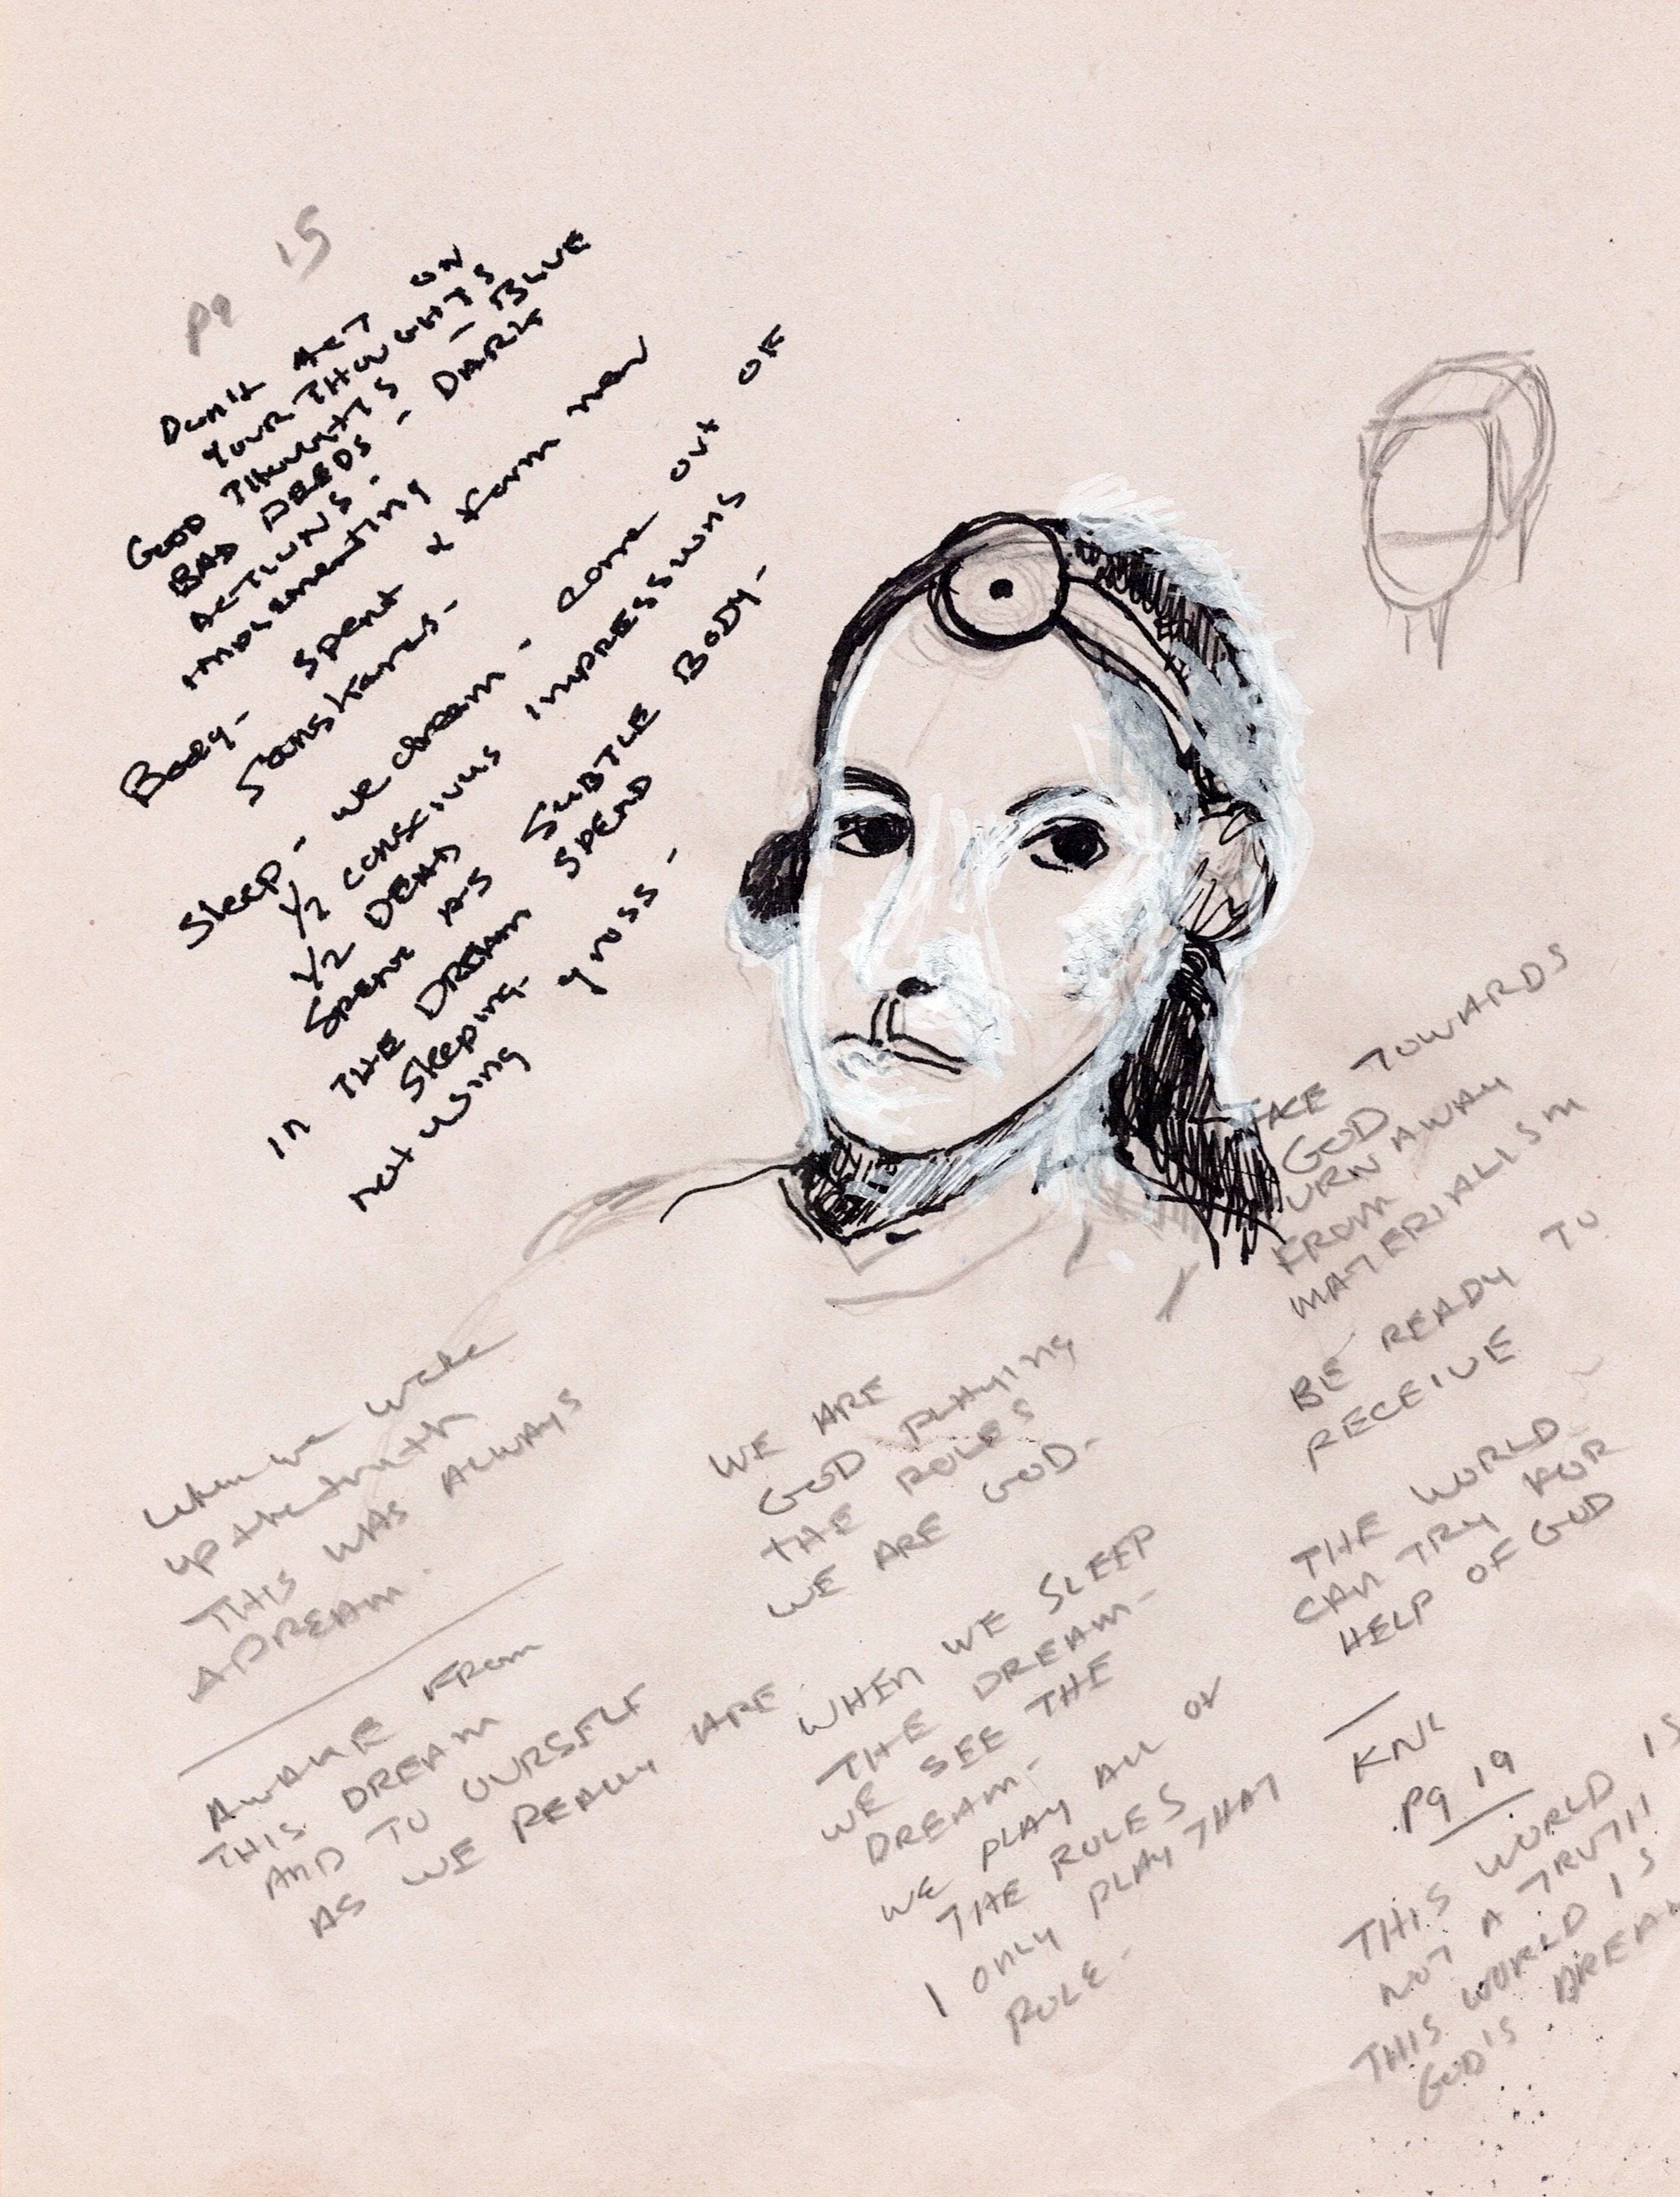 pg 15
Don't ACT ON
YOUR THOUGHTS
GOOD THOUGHTS - BLUE
BAD DEEDS - DARK
ACTIONS -
implementing
Body - spent & form new
Sanskaras -
Sleep - we dream - come out of
1/2 conscious impressions
1/2 DEAD
Spent AS SUBTLE BODY -
IN THE DREAM SPEND
Sleeping -
not using gross -
TAKE TOWARDS
GOD
TURN AWAY
FROM
MATERIALISM
BE READY TO
RECEIVE
THE WORLD
CAN TRY FOR
HELP OF GOD
pg 19
THIS WORLD IS
NOT A TRUTH
THIS WORLD IS
GOD'S DREAM
when we wake
up the truth
THIS WAS ALWAYS
A DREAM.
AWAKE FROM
THIS DREAM
AND TO OURSELF
AS WE REALLY ARE
WE ARE
GOD PLAYING
THE ROLES
WE ARE GOD -
WHEN WE SLEEP
THE DREAM -
WE SEE THE
DREAM -
WE PLAY ALL OF
THE ROLES
I only PLAY THAT
ROLE -